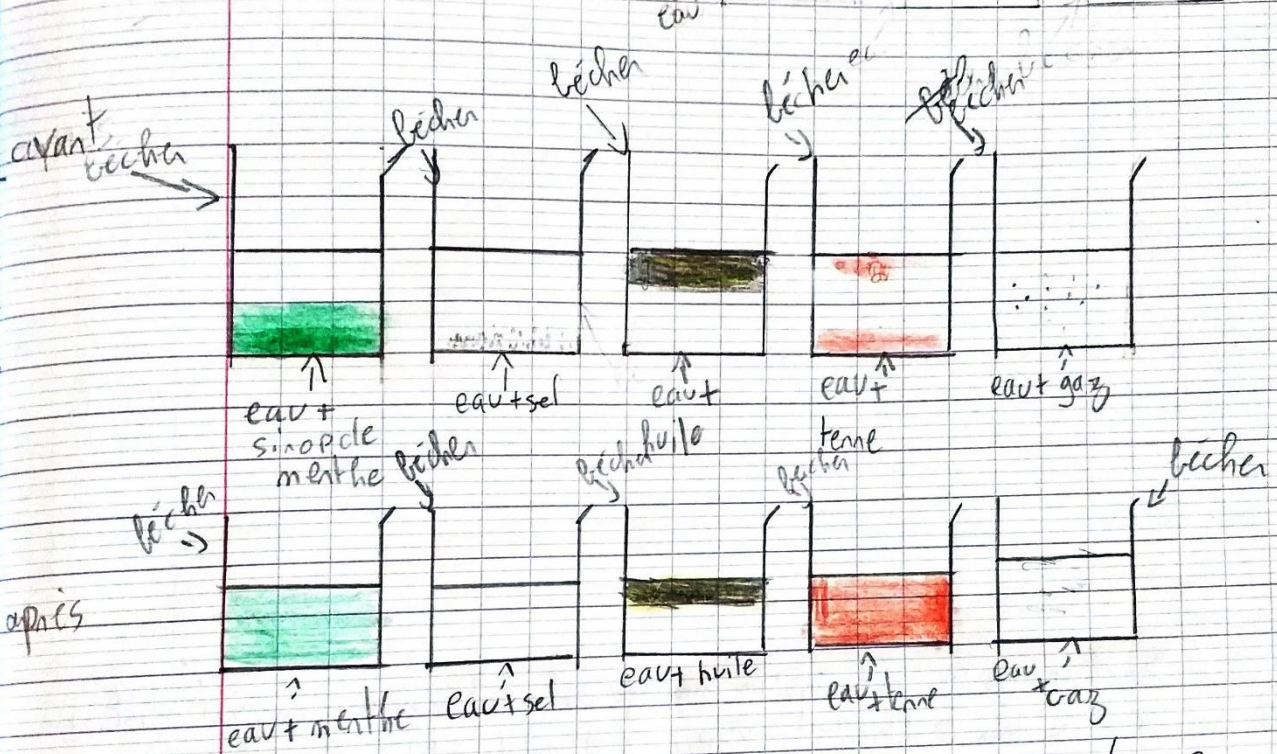 eau
bécher
bécher
bécher
bécher
avant
bécher
eau +
sirop de
menthe
eau + sel
eau +
huile
eau +
terre
eau + gaz
bécher
bécher
béche
bécher
bécher
après
eau + menthe
eau + sel
eau + huile
eau + terre
eau
+ gaz